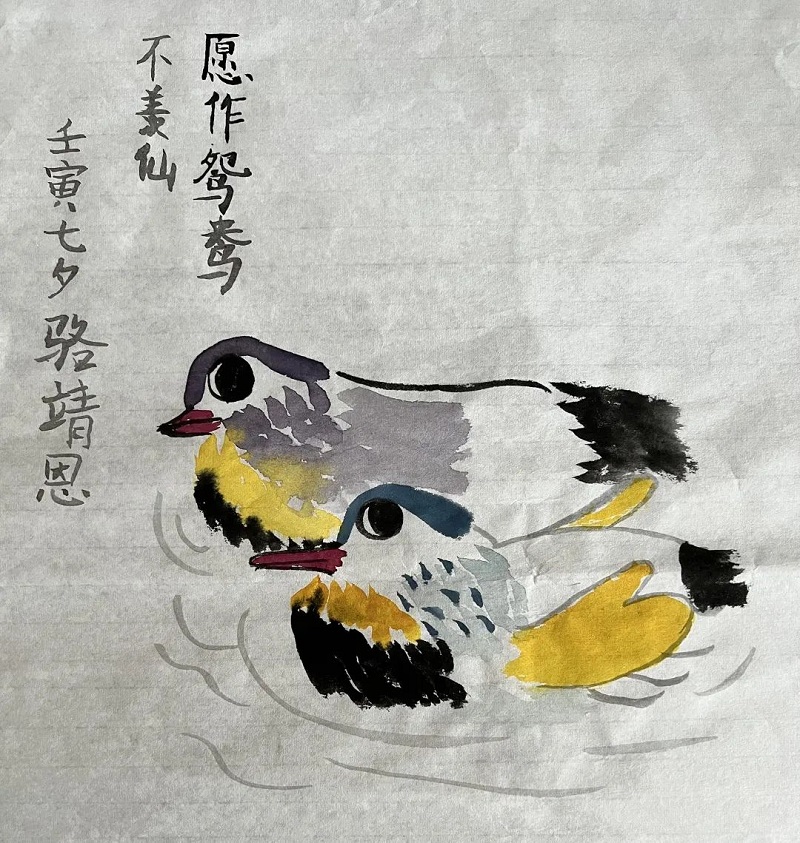 愿作鸳鸯
不羡仙
壬寅七夕 骆靖恩